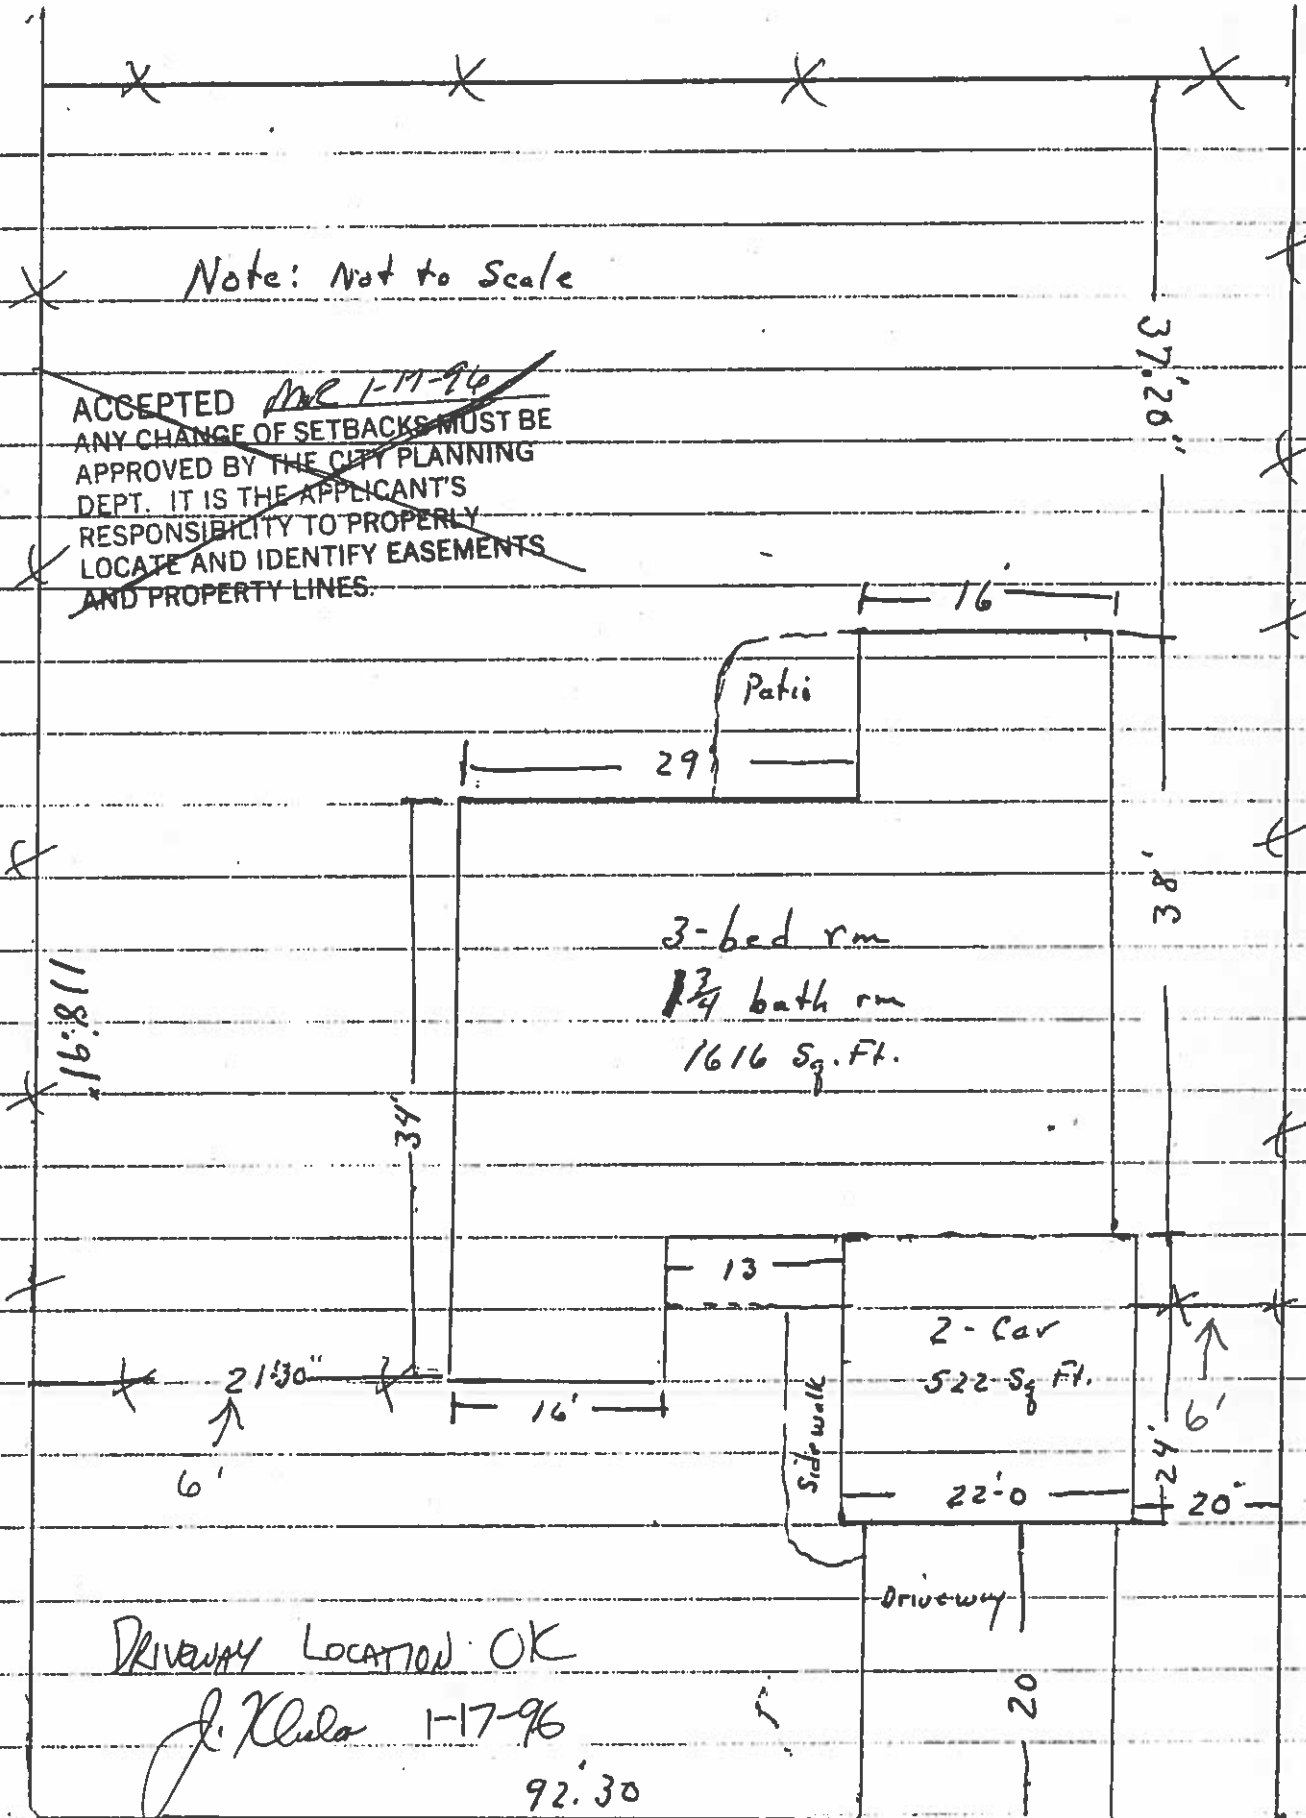 Note: Not to Scale
37.'20"
ACCEPTED 1-17-96
ANY CHANGE OF SETBACKS MUST BE
APPROVED BY THE CITY PLANNING
DEPT. IT IS THE APPLICANT'S
RESPONSIBILITY TO PROPERLY
LOCATE AND IDENTIFY EASEMENTS
AND PROPERTY LINES.
16'
Patio
29'
38'
3-bed rm
1 3/4 bath rm
1616 Sq. Ft.
118.'91"
34'
13
2-Car
522 Sq Ft.
6'
21'30"
6'
16'
Sidewalk
24'
22'-0
20'
Driveway
20
DRIVEWAY LOCATION OK
1-17-96
92.'30